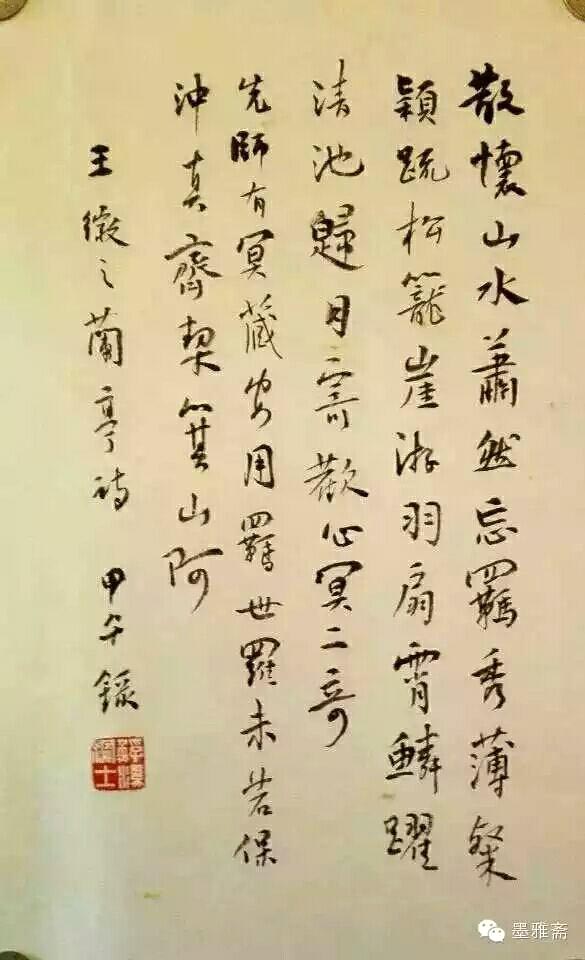 散懷山水蕭然忘羈秀薄粲
穎疏松籠崖游羽扇霄鱗躍
清池歸目寄歡心冥二奇
先師有冥藏安用羈世羅未若保
沖真齊契箕山阿
王徽之蘭亭詩 甲午錄
墨雅斋